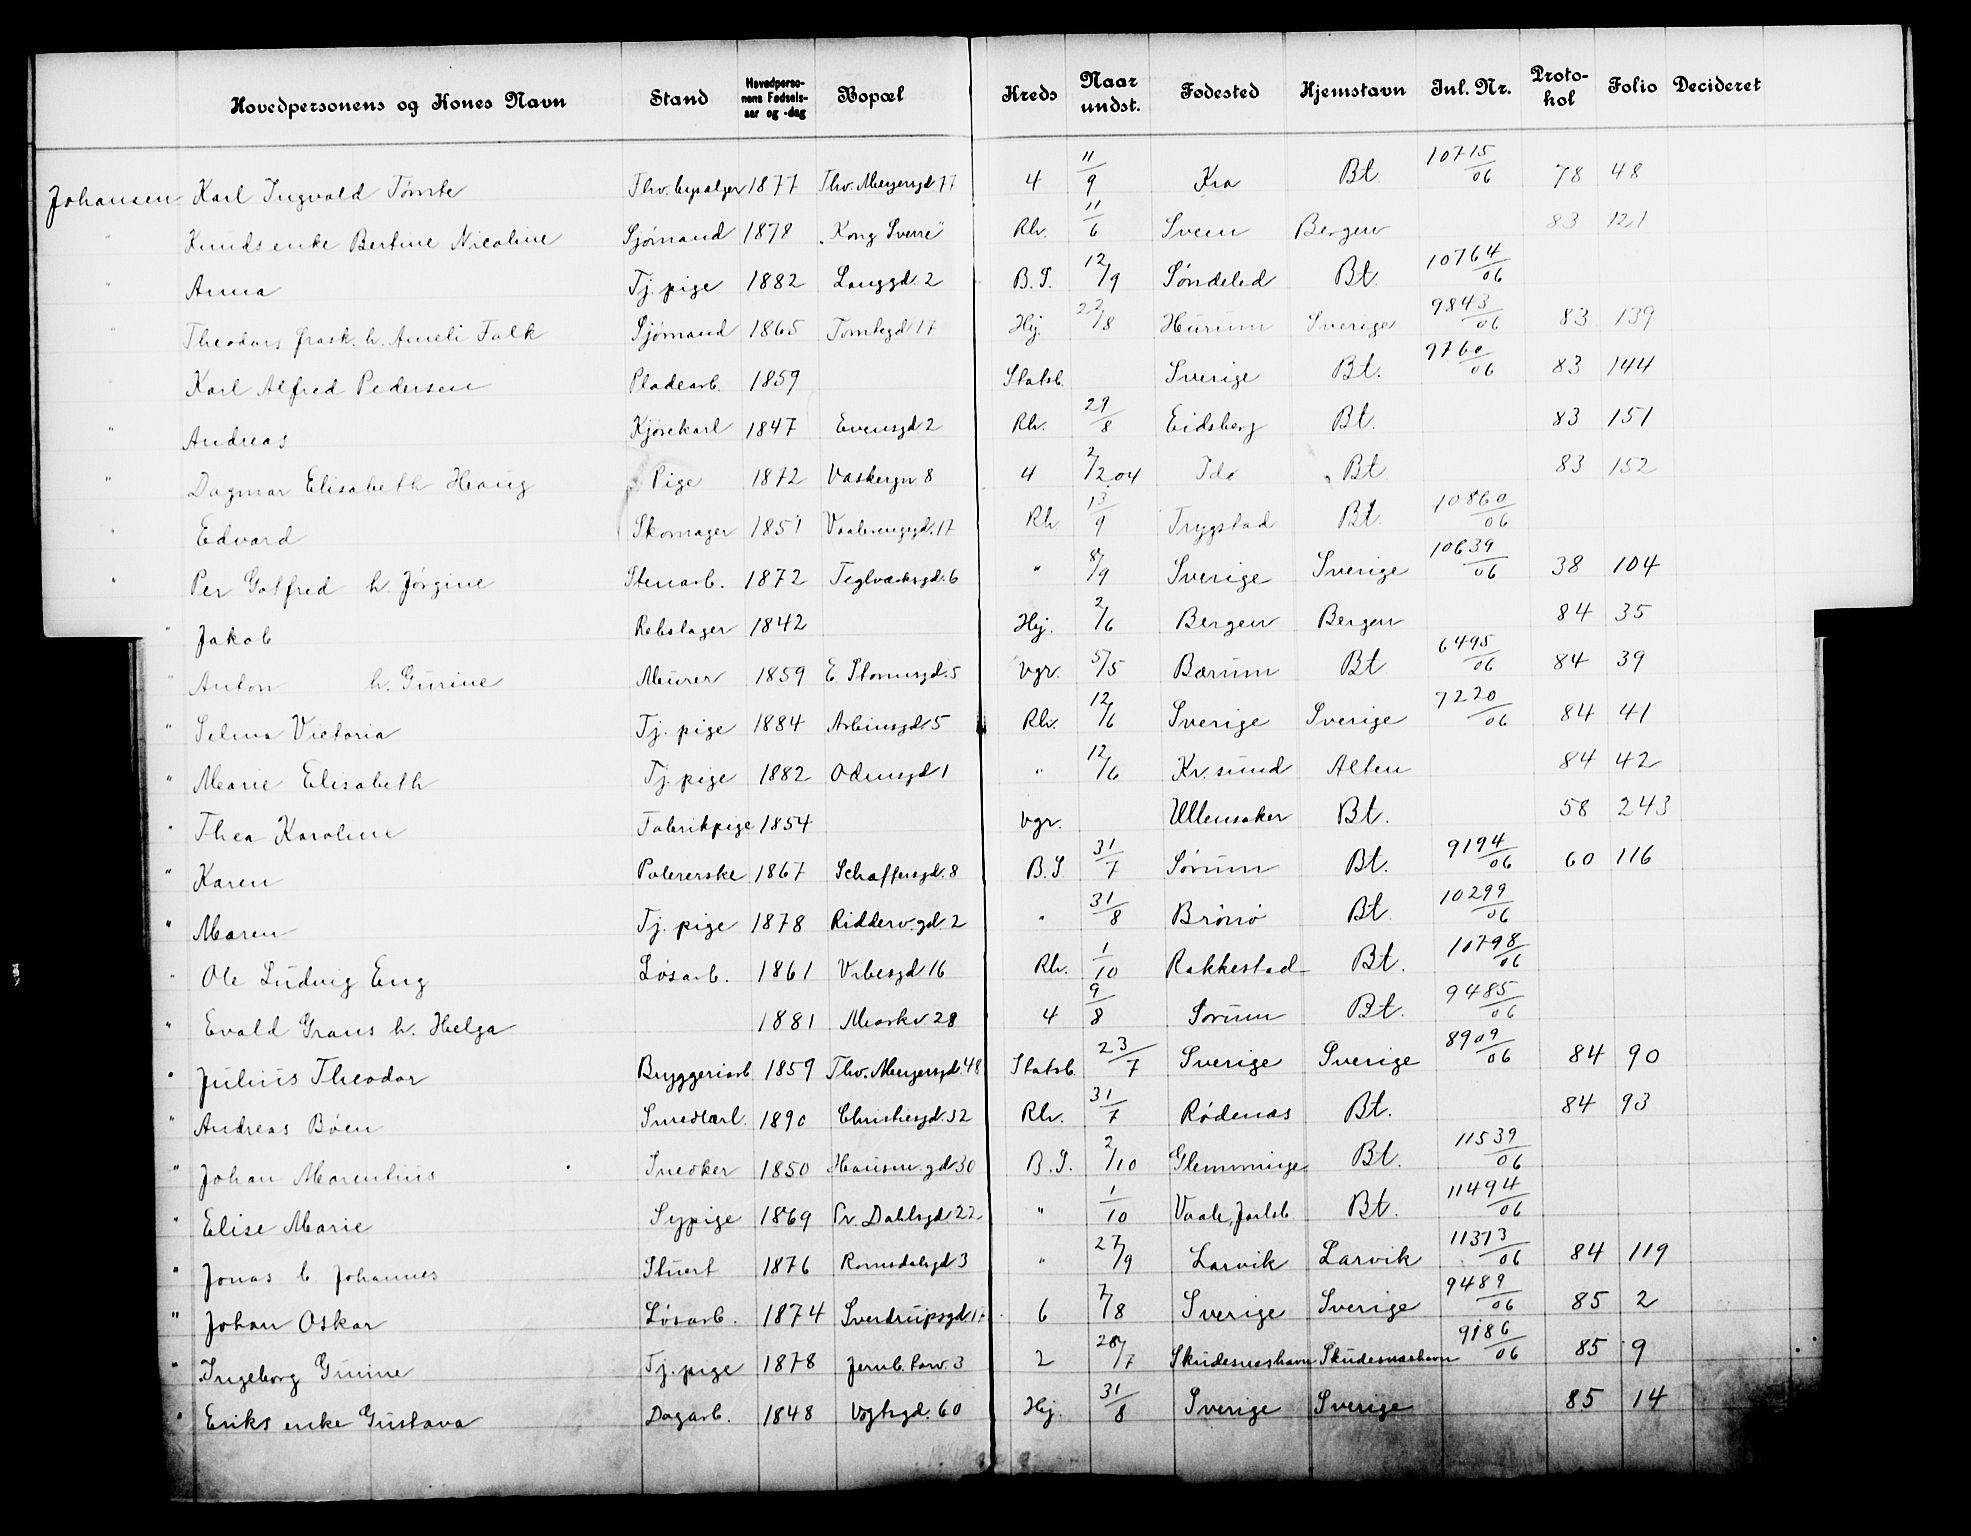 Hovedpersonens og Kones Navn Stand Hovedperso-nens Fødsels-aar og -dag Bopæl Kreds Naar undst. Fødested Hjemstavn Inl. Nr. Proto-kol Folio Decideret
Johansen Karl Ingvald Tømte Thv. bypalger 1877 Thv. Meyersgd 77 4 11/9 Kra Bt 10715/06 78 48
" Knuds enke Bertine Nicoline Sjømand 1878 "Kong Sverre" Rh. 11/6 Sveen Bergen 83 121
" Anna Tj. pige 1882 Langgd. 2 B.S. 12/9 Søndeled Bt. 10764/06
" Theodors frask. h. Ameli Falk Sjømand 1865 Tomtegd 17 Hj. 22/8 Hurum Sverige 9843/06 83 139
" Karl Alfred Pedersen Pladearb. 1859 Statsb. Sverige Bt. 9760/06 83 144
" Andreas Kjørekarl 1847 Evensgd 2 Rh. 29/8 Eidsberg Bt. 83 151
" Dagmar Elisabeth Haug Pige 1872 Vaskergn 8 4 2/2 04 Ido Bt 83 152
" Edvard Skomager 1851 Vaalerenggd. 17 Rh 13/9 Trygstad Bt. 10860/06
" Per Gotfred h. Jørgine Stenarb. 1872 Teglverksgd. 6 " 8/9 Sverige Sverige 10639/06 38 104
" Jakob Rebslager 1842 Hj. 2/6 Bergen Bergen 84 35
" Anton h. Gurine Murer 1859 E. Stormsgd. 5 Vgr. 5/5 Bærum Bt 6495/06 84 39
" Selma Victoria Tj. pige 1884 Arbinsgd 5 Rh. 12/6 Sverige Sverige 7220/06 84 41
" Marie Elisabeth Tj. pige 1882 Odinsgd 1 " 12/6 Kr. sund Alten 84 42
" Thea Karoline Fabrikpige 1854 Vgr. Ullensaker Bt. 58 243
" Karen Polererske 1867 Schaffersgd. 8 B.S. 31/7 Sørum Bt. 9194/06 60 116
" Maren Tj. pige 1878 Ridderv. gd. 2 " 31/8 Brønø Bt. 10299/06
" Ole Ludvig Eng Løsarb. 1861 Vibesgd 16 Rh. 1/10 Rakkestad Bt. 11798/06
" Evald Grans h. Helga 1881 Markv 28 4 9/8 Sørum Bt. 9485/06
" Julius Theodor Bryggeriarb 1859 Thv. Meyersgd. 48 Statsb. 23/7 Sverige Sverige 8909/06 84 90
" Andreas Bøen Smedlærl. 1890 Christiesgd. 32 Rh. 31/7 Rødenæs Bt. 84 93
" Johan Marentius Snedker 1850 Hausm. gd 30 B.S. 2/10 Glemminge Bt. 11539/06
" Elise Marie Sypige 1869 Pr. Dahlsgd 22 " 1/10 Vaale, Jarlsb. Bt. 11494/06
" Jonas b Johannes Stuert 1876 Romsdalsgd 3 " 27/9 Larvik Larvik 11373/06 84 119
" Johan Oskar Løsarb. 1874 Sverdrupsgd. 17 6 7/8 Sverige Sverige 9489/06 85 2
" Ingeborg Gurine Tj. pige 1878 Jernb. torv. 3 2 28/7 Skudesneshavn Skudesneshavn 9186/06 85 9
" Eriks enke Gustava Dagarb. 1848 Vogtsgd. 60 Hj. 31/8 Sverige Sverige 85 14